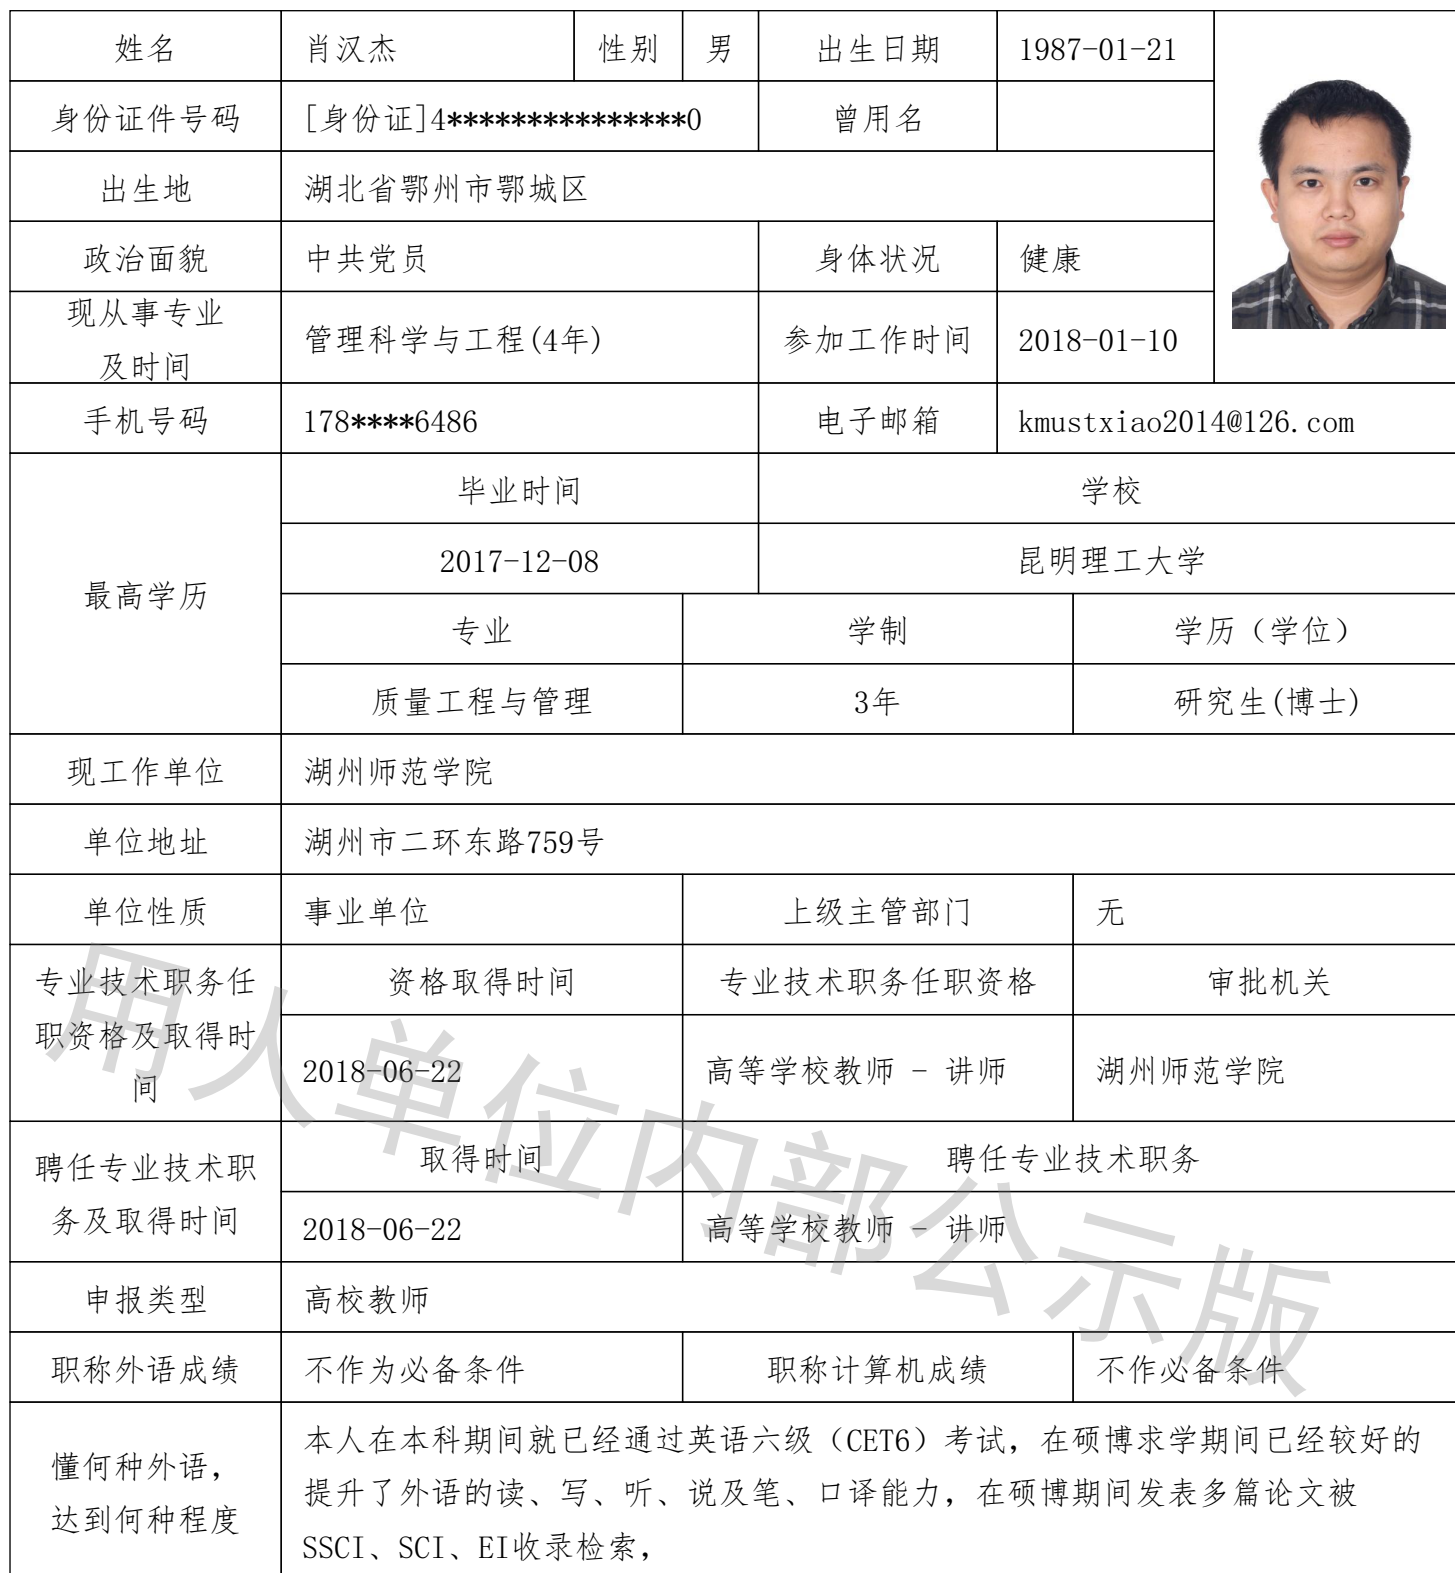 姓名 肖汉杰 性别 男 出生日期 1987-01-21
身份证件号码 [身份证]4***************0 曾用名
出生地 湖北省鄂州市鄂城区
政治面貌 中共党员 身体状况 健康
现从事专业
及时间 管理科学与工程(4年) 参加工作时间 2018-01-10
手机号码 178****6486 电子邮箱 kmustxiao2014@126.com
最高学历
毕业时间 学校
2017-12-08 昆明理工大学
专业 学制 学历（学位）
质量工程与管理 3年 研究生(博士)
现工作单位 湖州师范学院
单位地址 湖州市二环东路759号
单位性质 事业单位 上级主管部门 无
专业技术职务任
职资格及取得时
间
资格取得时间 专业技术职务任职资格 审批机关
2018-06-22 高等学校教师 - 讲师 湖州师范学院
聘任专业技术职
务及取得时间
取得时间 聘任专业技术职务
2018-06-22 高等学校教师 - 讲师
申报类型 高校教师
职称外语成绩 不作为必备条件 职称计算机成绩 不作必备条件
懂何种外语，
达到何种程度
本人在本科期间就已经通过英语六级（CET6）考试，在硕博求学期间已经较好的
提升了外语的读、写、听、说及笔、口译能力，在硕博期间发表多篇论文被
SSCI、SCI、EI收录检索，
用人单位内部公示版